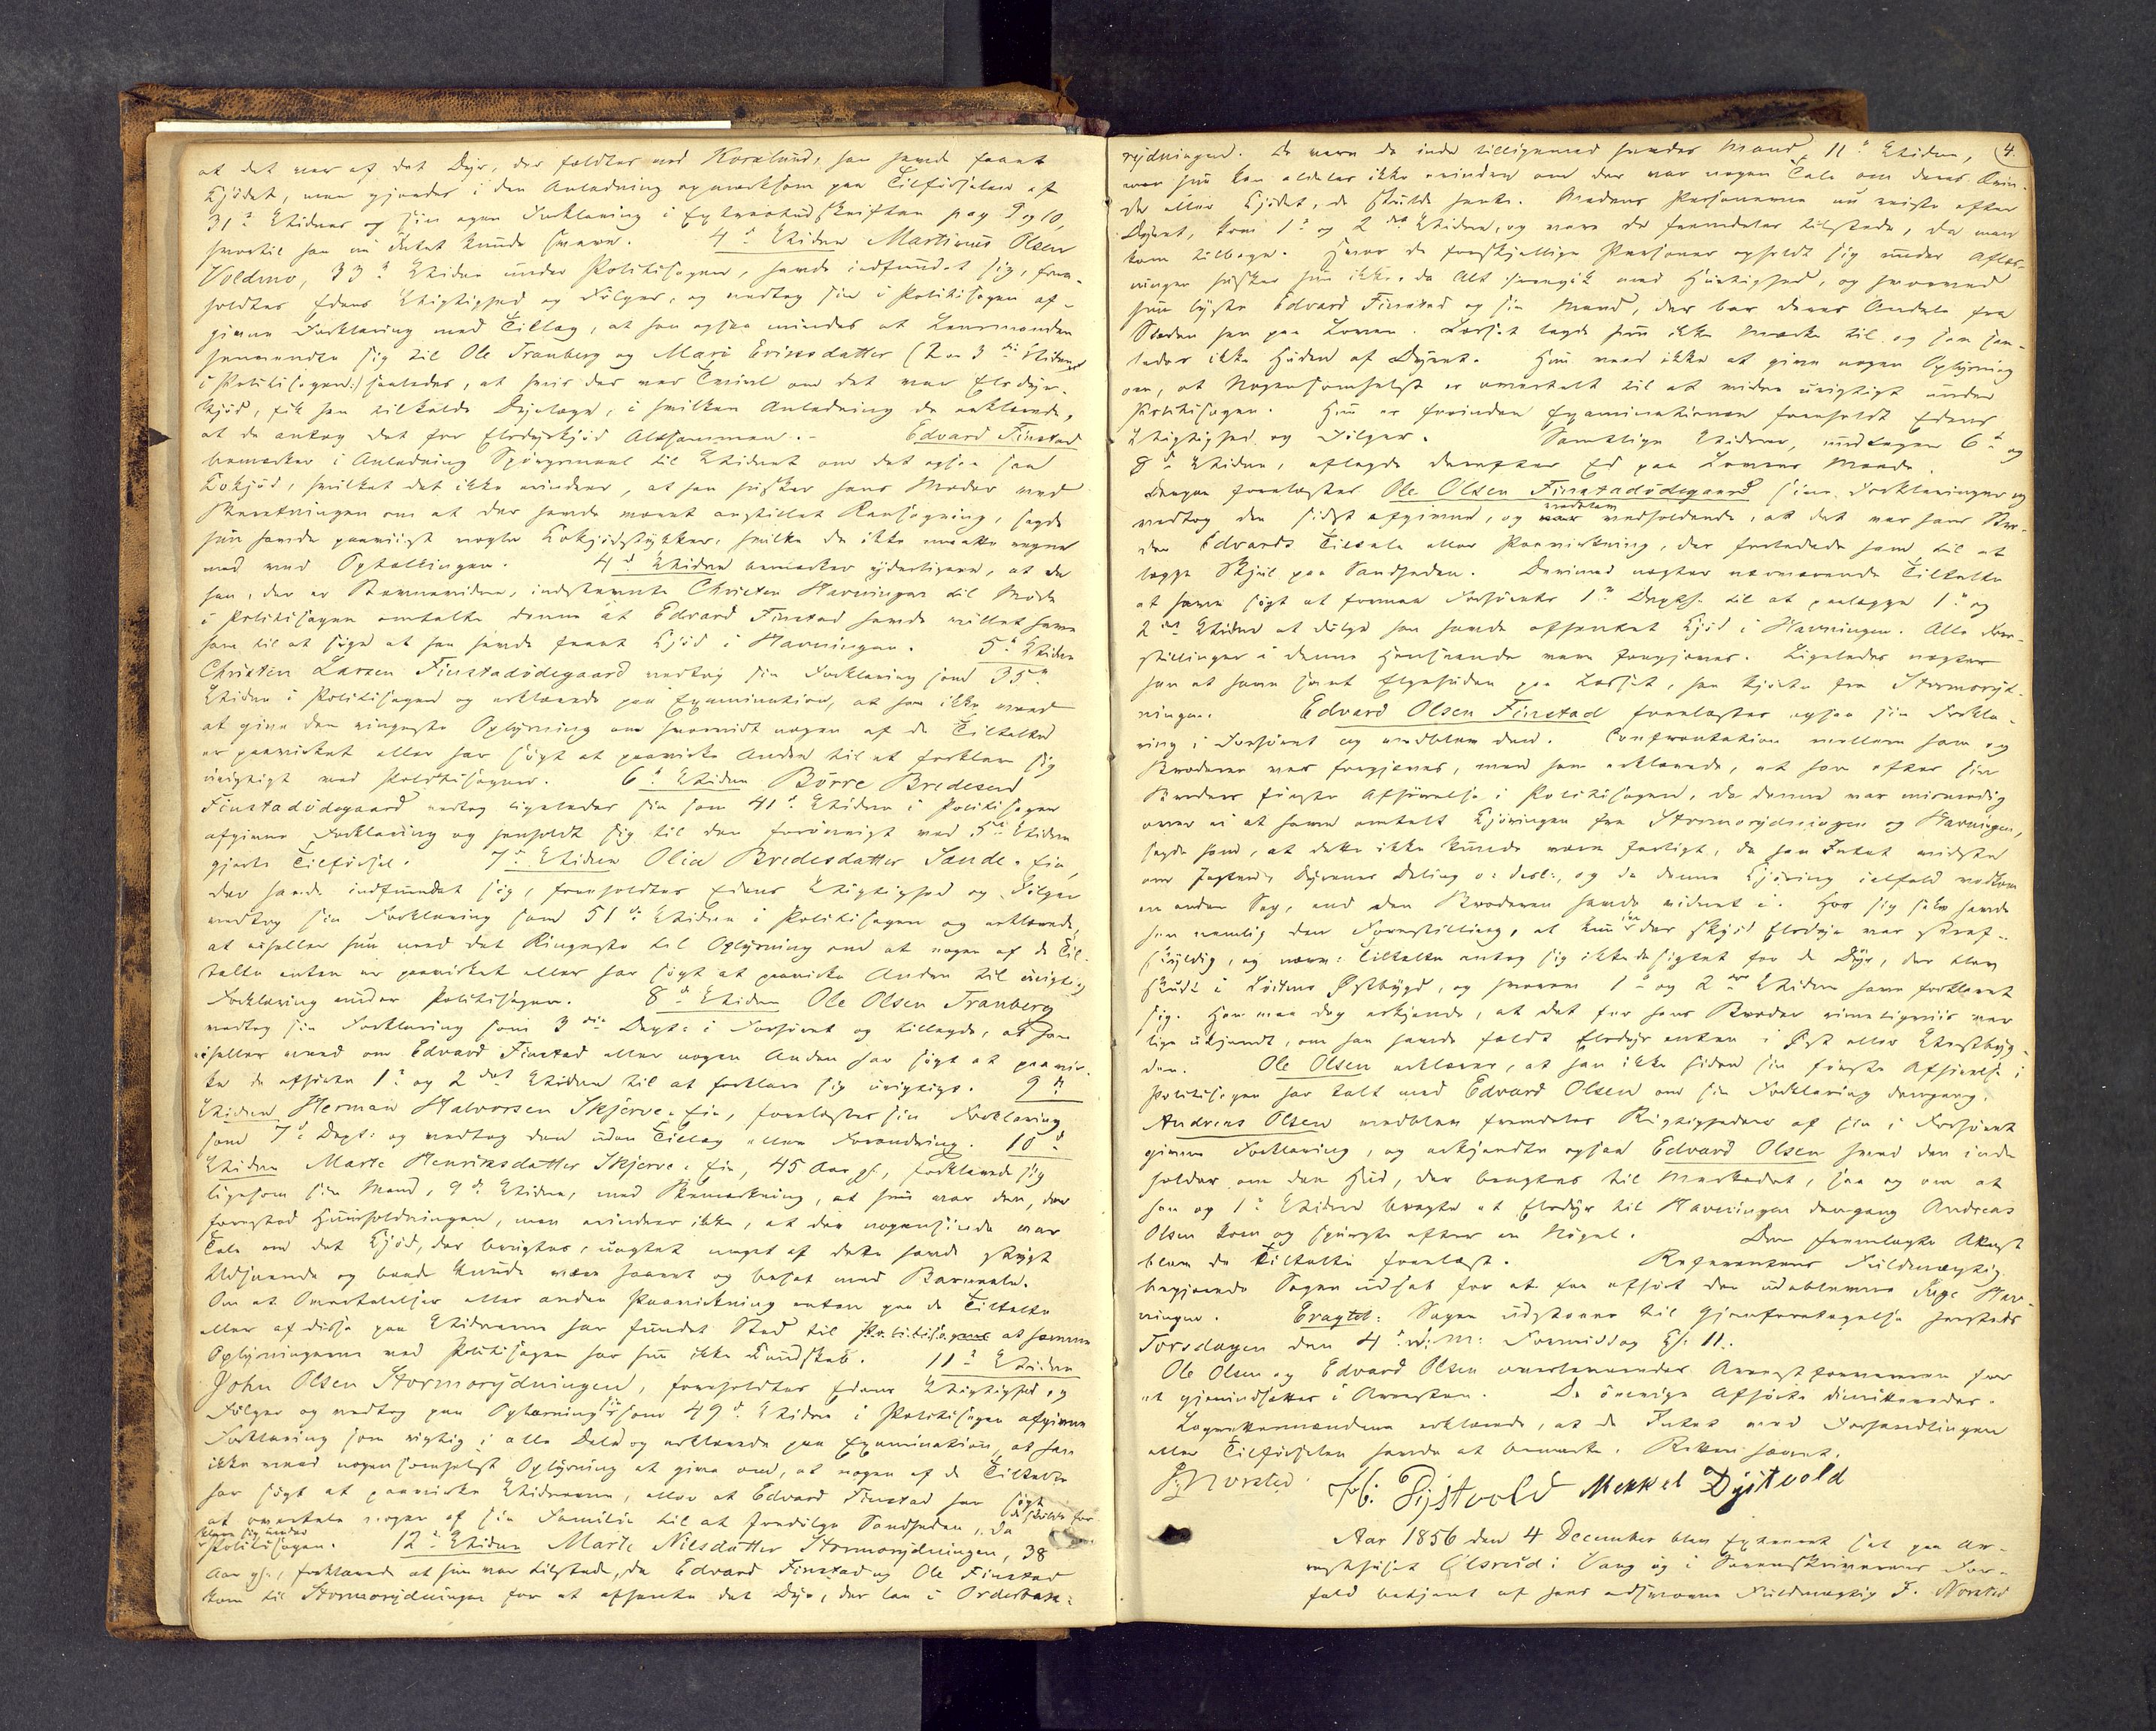 at det var af det Dyr, der fældtes ved Korslund, han havde faaet
Kjödet, men gjordes i den Anledning opmærksom paa Tilförselen af
31te Vidnes og sin egen Forklaring i Extraretsudskriften pag 9 og 10,
hvortil han nu Intet kunde svare. 4de Vidne Martinus Olsen
Voldmo, 33te Vidne under Politisagen, havde indfundet sig, fore-
holdtes Edens Vigtighed og Fölger, og vedtog sin i Politisagen af-
givne Forklaring med Tillæg, at han ogsaa mindes at Lensmanden
henvendte sig til Ole Tranberg og Mari Eriksdatter (2 og 3die Vidne
i Politisagen) saaledes, at hvis der var Tvivl om det var Elsdyr-
kjöd, fik han tilkalde Dyrlæge, i hvilken Anledning de erklærede,
at de antog det for Elsdyrkjöd Altsammen. - Edvard Finstad
bemærker i Anledning Spörgsmaal til Vidnet om det ogsaa saa
Kokjöd, hvilket det ikke erindrer, at han husker hans Moder ved
Beretningen om at der havde været anstillet Ransagning, sagde
hun havde paaviist nogle Kokjödstykker, hvilke de ikke medtog
med ved Optællingen. 4de Vidne bemærker yderligere, at da
han, der er Stevnevidne, indstevnte Christen Havningen til Möde
i Politisagen omtalte denne at Edvard Finstad havde villet have
ham til at sige at han havde faaet Kjöd i Havningen. 5te Vidne
Christen Larsen Finstadödegaard vedtog sin Forklaring som 35te
Vidne i Politisagen og erklærede paa Examination, at han ikke veed
at give den ringeste Oplysning om hvorvidt nogen af de Tiltalte
er paavirket eller har sögt at paavirke Andre til at forklare sig
urigtigt ved Politisagen. 6te Vidne Börre Bredesen
Finstadödegaard vedtog ligeledes sin som 41de Vidne i Politisagen
afgivne Forklaring og henholdt sig til den forövrigt ved 5te Vidne
gjorte Tilförsel. 7de Vidne Olia Bredesdatter Sande-eie,
der havde indfundet sig, foreholdtes Edens Vigtighed og Fölger
vedtog sin Forklaring som 51de Vidne i Politisagen og erklærede,
at eiheller hun veed det Ringeste til Oplysning om at nogen af de Til-
talte enten er paavirket eller har sögt at paavirke Andre til urigtig
Forklaring under Politisagen. 8de Vidne Ole Olsen Tranberg
vedtog sin Forklaring som 3die Dept: i Forhöret og tillagde, at han
eiheller veed om Edvard Finstad eller nogen Anden har sögt at paavir-
ke de afhörte 1te og 2det Vidne til at forklare sig urigtigt. 9de
Vidne Herman Halvorsen Skjerve-eie, forelæstes sin Forklaring
som 7de Dept: og vedtog den uden Tillæg eller Forandring. 10de
Vidne Marte Henriksdatter Skjerve-eie, 45 Aar gl., forklarede sig
ligesom sin Mand, 9de Vidne, med Bemærkning, at hun var den, der
forestod Huusholdningen, men erindrer ikke, at der nogensinde var
Tale om det Kjöd, der brugtes, uagtet noget af dette havde
Udseende og baade kunde være
Om at Overtalelser eller anden Paavirkning enten paa de Tiltalte
eller af disse paa Vidnerne har fundet Sted til Politisagens at
Oplysningerne ved Politisagen har hun ikke Kundskab. 11te Vidne
John Olsen Stormorydningen, foreholdtes Edens Vigtighed og
Fölger og vedtog paa Oplæsning sin som 49de Vidne i Politisagen afgivne
Forklaring som rigtig i alle Dele og erklærede paa Examination, at han
ikke veed nogensomhelst Oplysning at give om, at nogen af de Tiltalte
har sögt at paavirke Vidnerne, eller at Edvard Finstad har sögt
at overtale nogen af sin Familie til at fordölge Sandheden, da de skulde for-
klare sig under
Politisagen. 12te Vidne Marte Nilsdatter Stormorydningen, 38
Aar gl., forklarede at hun var tilstede, da Edvard Finstad og Ole Finstad
kom til Stormorydningen for at afhente det Dyr, der laa i
4.
rydningen. De vare da inde tilligemed hendes Mand, 11te Vidne,
men hun kan aldeles ikke erindre om der var nogen Tale om deres
de eller Kjödet, de skulde hente. Medens Personerne nu reiste efter
Dyret, kom 1te og 2det Vidne, og vare de fremdeles tilstede, da man
kom tilbage. Hvor de forskjellige Personer opholdt sig under Aflæs-
ningen husker hun ikke, da Alt foregik med Hurtighed, og hvorved
hun lyste Edvard Finstad og sin Mand, der bar deres Andele fra
Sleden hen paa Loven. Læsset lagde hun ikke Mærke til og saa saa-
ledes ikke Huden af Dyret. Hun veed ikke at give nogen Oplysning
om, at Nogensomhelst er overtalt til at vidne urigtigt under
Politisagen. Hun er forinden Examinationen foreholdt Edens
Vigtighed og Fölger. Samtlige Vidner, undtagen 6te og
8de Vidne, aflagde derefter Ed paa Lovens Maade.
Derpaa forelæstes Ole Olsen Finstadödegaard sine Forklaringer og
vedtog den sidst afgivne, og vedblev vedholdende, at det var hans Bro-
der Edvards Tiltale eller Paavirkning, der forledede ham til at
lægge Skjul paa Sandheden. Derimod nægter nærværende Tiltalte
at have sögt at formaa Forhörets 1te Dept. til at paalægge 1te og
2det Vidne at dölge han havde afhentet Kjöd i Havningen. Alle Fore-
stillinger i denne Henseende vare forgjæves. Ligeledes nægter
han at have seet Elgshuden paa Læsset, han kjörte fra Stormoryd-
ningen. Edvard Olsen Finstad forelæstes ogsaa sin Forkla-
ring i Forhöret og vedblev den. Confrontation mellem ham og
Broderen var forgjæves, men han erklærede, at han efter sin
Broders förste Afhörelse i Politisagen, da denne var mismodig
over ei at have omtalt Kjöringen fra Stormorydningen og Havningen,
sagde ham, at dette ikke kunde være farligt, da han Intet vidste
om Jagten, Dyrenes Deling o: desl:, og da denne Kjöring ialfald vedkom
en anden Sag, end den Broderen havde vidnet i. Hos sig selv havde
han nemlig den Forestilling, at kun den der skjöd Elsdyr var straf-
skyldig, og nærv: Tiltalte antog sig ikke sigtet for de Dyr, der blev
skudt i Löitens Östbygd, og hvorom 1te og 2det Vidne have forklaret
sig. Han maa dog erkjende, at det for hans Broder rimeligviis var
lige ubekjendt, om han havde fældt Elsdyr enten i Öst eller Vestbyg-
den. Ole Olsen erklærer, at han ikke siden sin förste Afhörelse i
Politisagen har talt med Edvard Olsen om sin Forklaring dengang.
Andreas Olsen vedblev fremdeles Rigtigheden af sin i Forhöret
givne Forklaring, og erkjendte ogsaa Edvard Olsen hvad den inde-
holder om den Hud, der bragtes til Markedet, saa og om at
han og 1te Vidne bragte et Elsdyr til Havningen dengang Andreas
Olsen kom og spurgte efter en Nögel. Den fremlagte Akt
blev de Tiltalte forelæst. Referentens Fuldmægtig
begjærede Sagen udsat for at faa afhört den udeblevne Inge Hav-
ningen. Eragtet: Sagen udstaaer til Gjenforetagelse hersteds
Torsdagen den 4de n: M: Formiddag Kl. 11.
Ole Olsen og Edvard Olsen overleveredes Arrestforvareren for
at gjenindsættes i Arresten. De övrige Afhörte dimitteredes.
Lagrettemændene erklærede, at de Intet ved Forhandlingen
eller Tilförselen havde at bemærke. Retten hævet.
J. Norsted H: Dystvold Mekkel Dystvold
Aar 1856 den 4 December blev Extraret sat paa Ar-
resthuset Olsrud i Vang og i Sorenskriverens For-
fald betjent af hans edsvorne Fuldmægtig J. Norsted